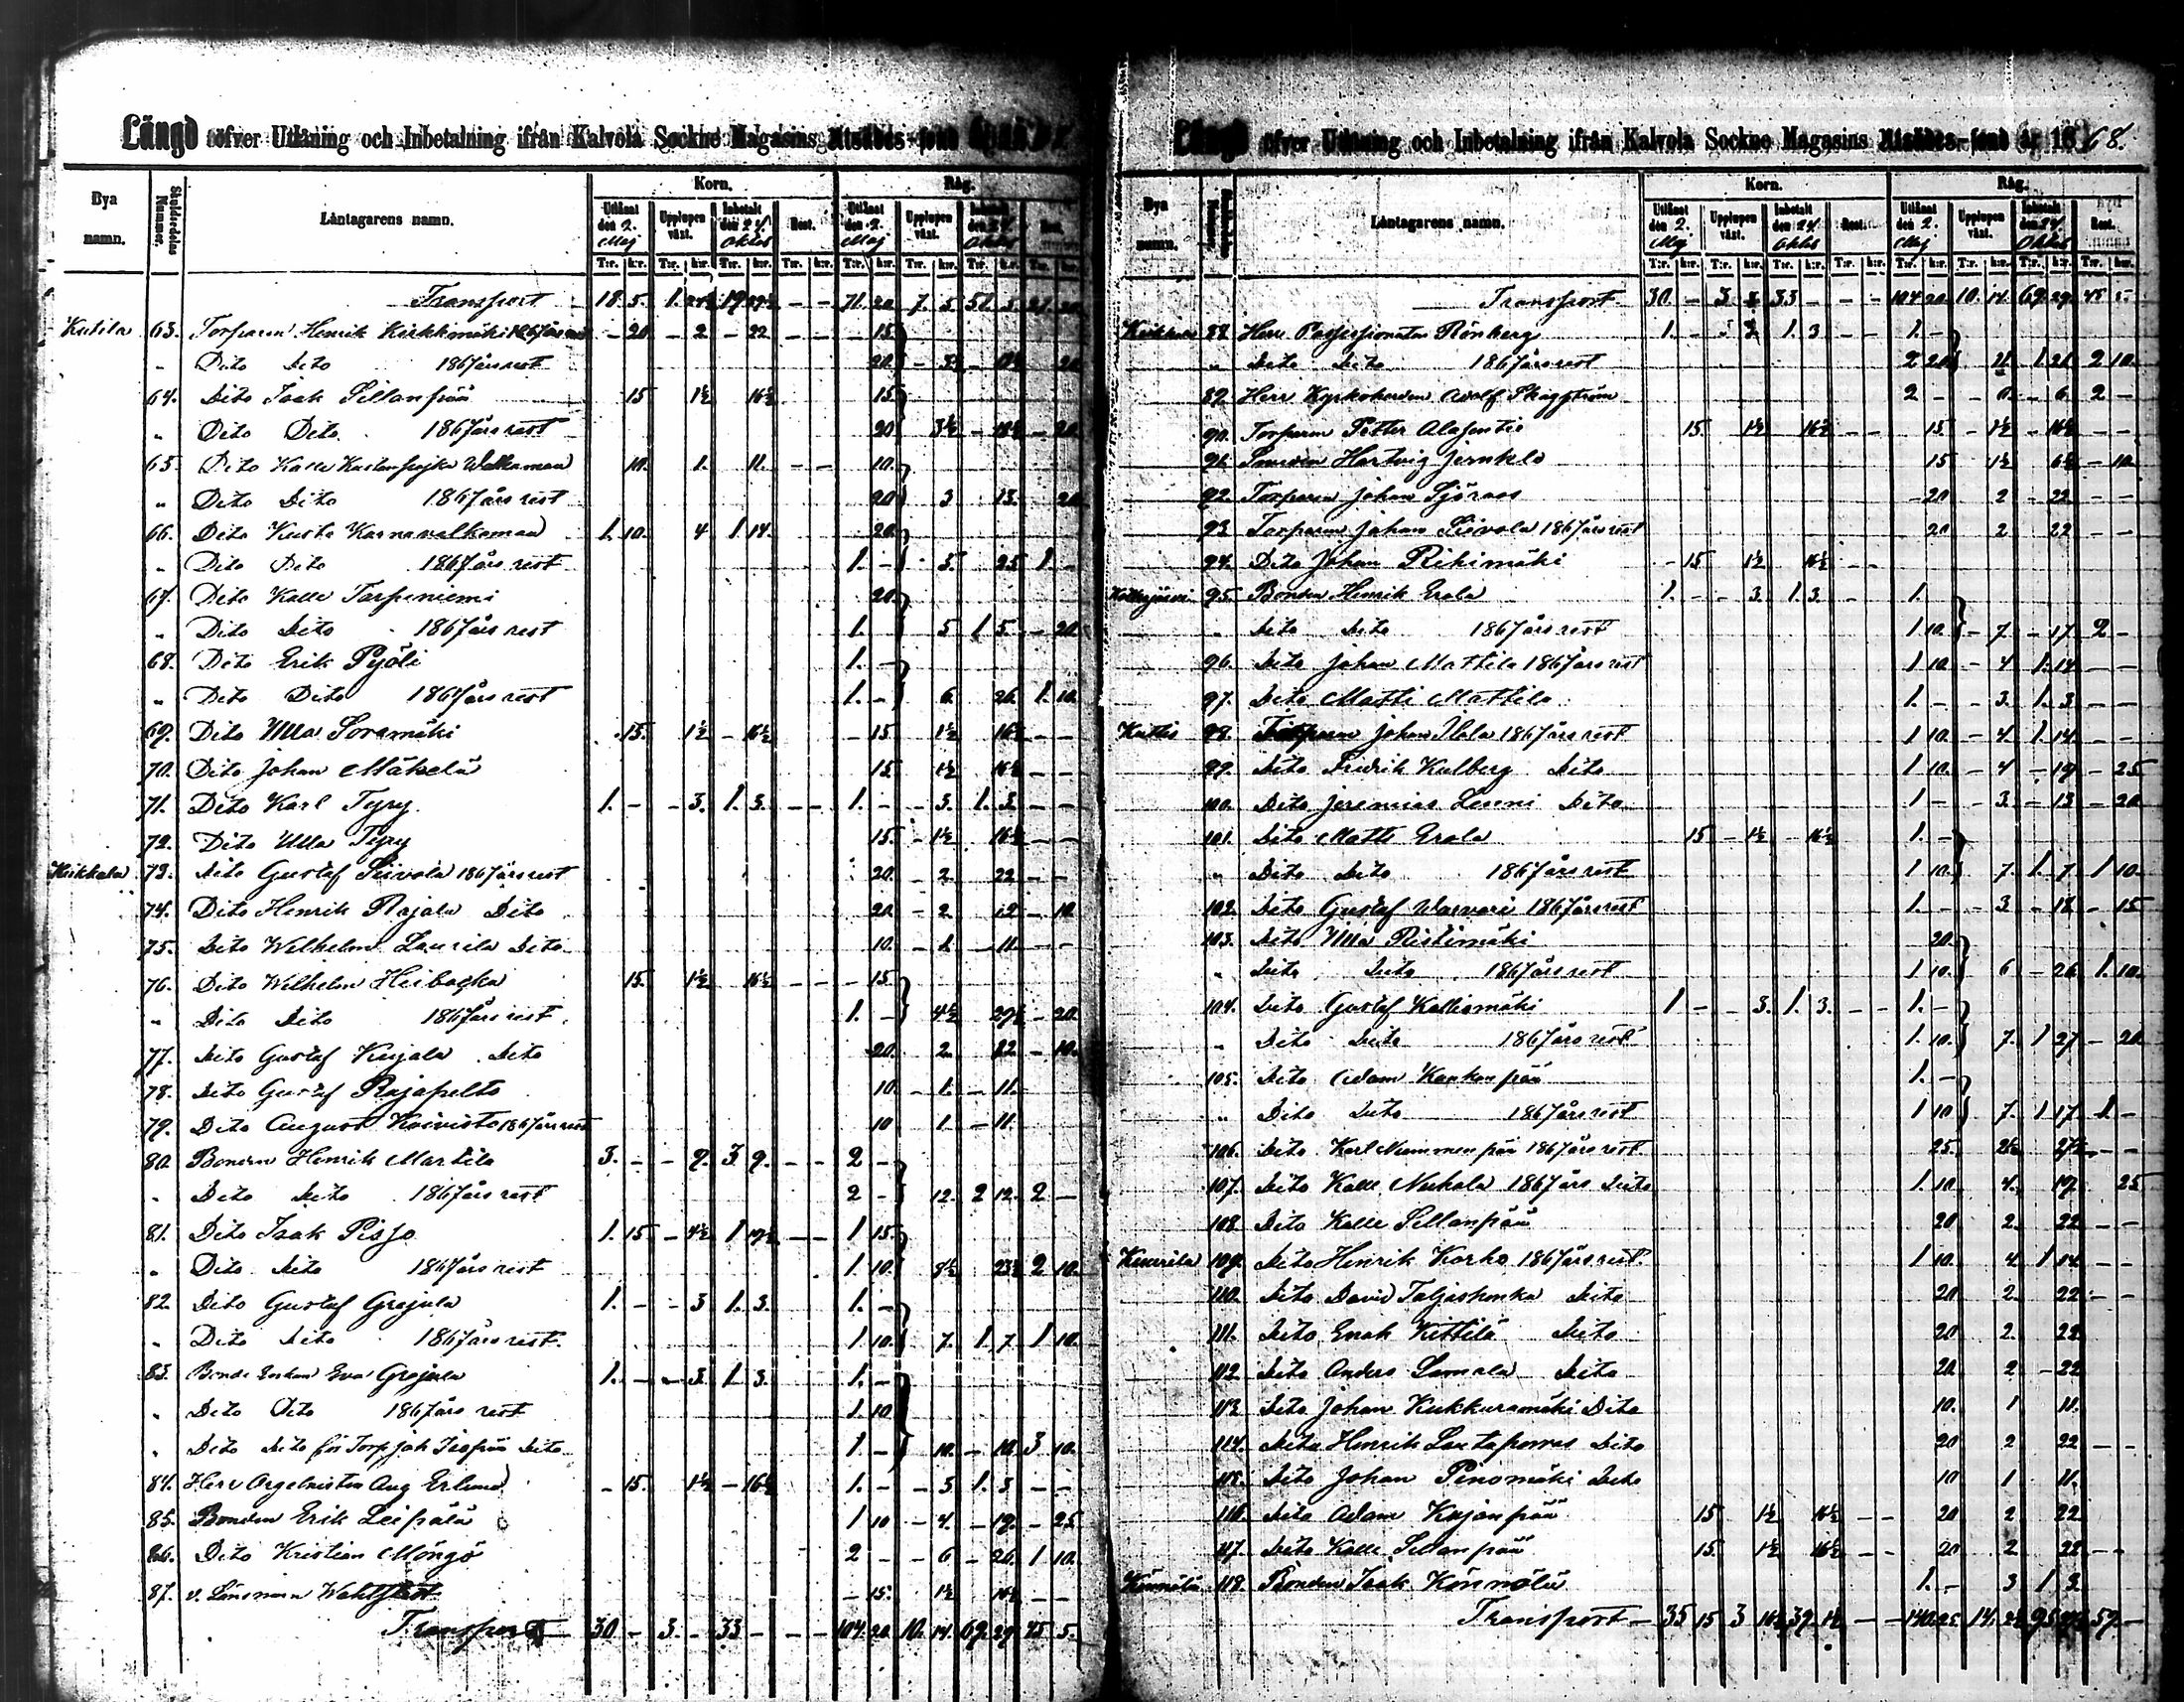 Längd öfver Utlåning och Inbetalning ifrån Kalvola Sockne Magasins Utsädes-fond
Bya namn. Låntagarens namn. Korn. Råg.
Utlånat den 2. Maj Upplupen växt. Inbetalt den 24. Oktob Rest. Utlånat den 2. Maj Upplupen växt. Inbetalt den 24 Oktob Rest.
T:r. k:r. T:r. k:r. T:r. k:r. T:r. k:r. T:r. k:r. T:r. k:r. T:r. k:r. T:r. k:r.
Transport 18. 5. 1. 19 - - 71. 20 7. 5 51. 5. 21. 20
Kutila 63. Torparen Henrik Kirkkomäki 1867 års rest - 20 - 2 - 22 15
" Dito Dito 1867 års rest 20 - 20
64. Dito Isak Sillanpää 15 1½ 16½ 15
" Dito Dito 1867 års rest 20 3½ - 18½ - 20
65. Dito Kalle Walkaman 10. 1. 11. - - 10.
" Dito Dito 1867 års rest 20 3 13. 20
66. Dito Kusta Karnavalkaman 1. 10. 4 1. 14. 20
" Dito Dito 1867 års rest 1. - 5. 25 1. -
67. Dito Kalle Tarpeniemi 20
" Dito Dito 1867 års rest 1. 5 1 5. - 20.
68. Dito Erik Pyöli 1. -
" Dito Dito 1867 års rest 1. - 6. 26. 1. 10.
69. Dito Ulla Soramäki 15. 1½ - 16½ - 15 1½ 16½ - -
70. Dito Johan Mäkelä 15. 1½ 16½ - -
71. Dito Karl Tyry 1. - - 3. 1. 3. - - 1. - - 3. 1. 3. - -
72. Dito Ulla Tyry 15. - 1½ 16½ - -
Keikkala 73. Dito Gustaf Siivola 1867 års rest 20. - 2. 22 - -
74. Dito Henrik Rajala Dito 20 - 2. 12 - 10
75. Dito Wilhelm Laurila Dito 10. - 1. - 11. - -
76. Dito Wilhelm Heibacka 15. 1½ 16½ - - 15
" Dito Dito 1867 års rest 1. - 4½ 29½ - 20.
77. Dito Gustaf Kujala Dito 20. 2. 12 - 10.
78. Dito Gustaf Rajapelto 10 - 1. - 11.
79. Dito August Koivisto 1867 års rest 10 1 - 11.
80. Bonden Henrik Martila 3. - - 9. 3. 9. - - 2 -
" Dito Dito 1867 års rest 2 - 12. 2 12. 2 -
81. Dito Isak Piso 1. 15. - 4½ 1 19½ - - 1 15.
" Dito Dito 1867 års rest 1. 10. 8½ 23½ 2 10.
82. Dito Gustaf Grejula 1. - - 3 1. 3. 1. -
" Dito Dito 1867 års rest. 1 10. 7. 1. 7. 1 10.
83. Bonde Enkan Eva Grejula 1. - - 3. 1 3. 1. -
" Dito Dito 1867 års rest 1. 10
" Dito Dito för Torp Joh Isopää Dito 1. - 10. - 10. 3 10.
84. Herr Orgelnisten Aug Erlund - 15. 1½ - 16½ 1. - - 3 1. 3 - -
85. Bonden Erik Leipälä 1 10 - 4. - 19. - 25
86. Dito Kristian Möngö 2 - - 6 - 26. 1 10.
87. v. Länsman - 15. 1½ 16½ - -
Transport 30 - 3. - 33 - - - 104. 20 10. 14. 69. 29. 45 5.
Längd öfver Utlåning och Inbetalning ifrån Kalvola Sockne Magasins Utsädes-fond år 1868.
Bya namn. Låntagarens namn. Korn. Råg.
Utlånat den 2. Maj Upplupen växt. Inbetalt den 24. Oktob Rest. Utlånat den 2. Maj Upplupen växt. Inbetalt den 24. Oktob Rest.
T:r. k:r. T:r. k:r. T:r. k:r. T:r. k:r. T:r. k:r. T:r. k:r. T:r. k:r. T:r. k:r.
Transport 30. - 3 33 - - - 104 20 10. 14. 69. 29. 45 5
88. Herr Possessionaten Rönberg 1. - 3 1. 3 - - 1. -
" Dito Dito 1867 års rest 2 20 11. 1. 21 2 10.
89. Herr Kyrkoherden Adolf 2 - - 6. - 6. 2 -
90. Torparen Petter Alasentie 15. 1½ 16½ - - 15. - 1½ - 16½ - -
91. Smeden Hartvig Jernklo 15 1½ 6½ - 10
92. Torparen Johan Sjöroos 20 2 - 22 - -
93. Torparen Johan Siivola 1867 års rest 20 2 22 - -
94. Dito Johan Riihimäki - 15 1½ 16½ - -
95. Bonden Henrik Erola 1. - - 3. 1. 3. 1.
" Dito Dito 1867 års rest 1 10 - 7 - 17. 2 -
96. Dito Johan Mattila 1867 års rest 1 10 - 4 1. 14 - -
97. Dito Matti Mattila 1. - - 3. 1. 3 - -
Kutis 98. Torparen Johan Ilola 1867 års rest 1 10. - 4. 1. 14. - -
99. Dito Fredrik Kulberg Dito 1 10. - 4 - 19 - 25
100. Dito Jeremias Lemi Dito 1 - - 3 - 13 - 20
101. Dito Matts Erola 15 - 1½ - 16½ 1. -
" Dito Dito 1867 års rest 1 10. 7. 1. 7. 1 10.
102. Dito Gustaf Warvari 1867 års rest 1. - - 3 - 18 - 15
103. Dito Ulla Ristimäki 20
" Dito Dito 1867 års rest 1 10. 6 - 26 1. 10.
104. Dito Gustaf Kalliomäki 1 - - 3. 1. 3. - - 1. -
" Dito Dito 1867 års rest 1. 10. 7. 1 27 - 20
105. Dito Adam Kankanpää 1. -
" Dito Dito 1867 års rest 1 10 7. 1 17. 1. -
106. Dito Karl Nummenpää 1867 års rest. 25. 2½ 27½ - -
107. Dito Kalle Nuhala 1867 års Dito 1. 10 4. 19. 25
108. Dito Kalle Sillanpää 20 2. 22 - -
Keurila 109. Dito Henrik Korho 1867 års rest. 1 10. 4. 1 14 - -
110. Dito David Taljashonka Dito 20 2. 22 - -
111. Dito Enok Kittilä Dito 20 2. 22
112. Dito Anders Lamala Dito 20 2 - 22
113. Dito Johan Kukkuramäki Dito 10. 1 11.
114. Dito Henrik Lautaporras Dito 20 2 22 - -
115. Dito Johan Pinomäki Dito 10 1 11.
116. Dito Adam Kajanpää 15 1½ 16½ - - 20 2 22
117. Dito Kalle Sillanpää 15. 1½ 16½ - - 20 2 22 - -
Könnölä 118. Bonden Isak Könnölä 1. - 3 1 3.
Transport 35 15 3 16½ 39. 1½ - - 140. 25. 14. 95 59. -